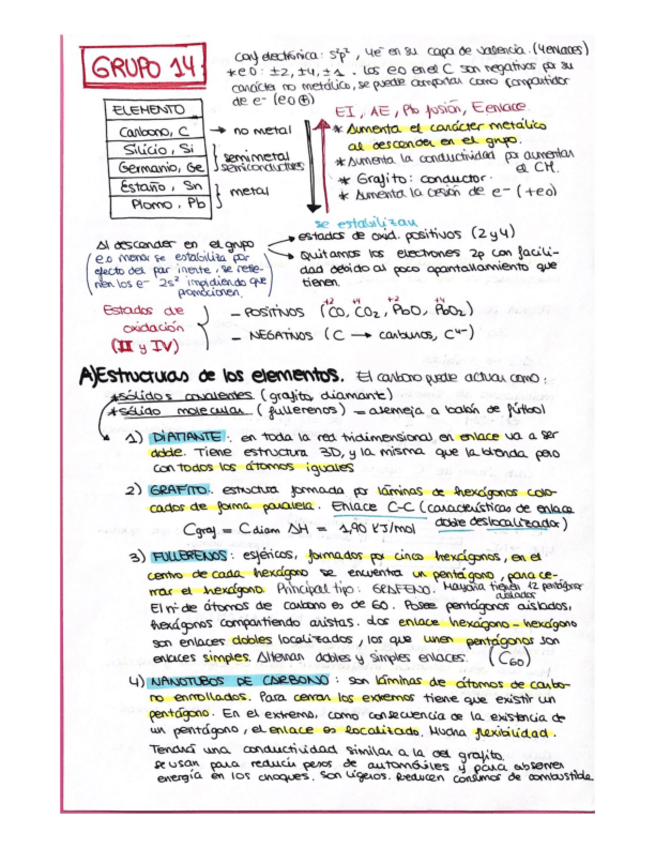 GRUPO 14
Conf electrónica: s²p², 4e⁻ en su capa de valencia. (4 enlaces)
* e0: ±2, ±4, ±1. Los e0 en el C son negativos por su
carácter no metálico, se puede comportar como compartidor
de e⁻ (e0 ⊕)
ELEMENTO
Carbono, C → no metal
Silicio, Si
Germanio, Ge
semimetal
semiconductores
Estaño, Sn
Plomo, Pb
metal
EI, AE, Pto fusión, Eenlace
* Aumenta el carácter metálico
al descender en el grupo.
* Aumenta la conductividad por aumentar
el CM.
* Grafito: conductor.
* Aumenta la cesión de e⁻ (+e0)
se estabilizan
Al descender en el grupo
→ estados de oxid. positivos (2 y 4)
→ Quitamos los electrones 2p con facili-
dad debido al poco apantallamiento que
tienen.
(e.o menor se estabiliza por
efecto del par inerte, se retie-
nen los e⁻ 2s² impidiendo que
promocionen)
Estados de
oxidación
(II y IV)
- POSITIVOS (C⁺²O, C⁺⁴O₂, Pb⁺²O, Pb⁺⁴O₂)
- NEGATIVOS (C → carburos, C⁴⁻)
A) Estructuras de los elementos. El carbono puede actuar como:
* sólidos covalentes (grafito, diamante)
* sólido molecular (fullerenos) = asemeja a balón de fútbol
1) DIAMANTE: en toda la red tridimensional en enlace va a ser
doble. Tiene estructura 3D, y la misma que la blenda pero
con todos los átomos iguales
2) GRAFITO: estructura formada por láminas de hexágonos colo-
cados de forma paralela. Enlace C-C (características de enlace
doble deslocalizado)
Cgraf = Cdiam ΔH = 1,90 KJ/mol
3) FULLERENOS: esféricos, formados por cinco hexágonos, en el
centro de cada hexágono se encuentra un pentágono, para ce-
rrar el hexágono. Principal tipo: GRAFENO. Mayoría tienen 12 pentágonos
aislados
El nº de átomos de carbono es de 60. Posee pentágonos aislados,
hexágonos compartiendo aristas. Los enlace hexágono-hexágono
son enlaces dobles localizados, los que unen pentágonos son
enlaces simples. Alternan dobles y simples enlaces. (C₆₀)
4) NANOTUBOS DE CARBONO: son láminas de átomos de carbo-
no enrollados. Para cerrar los extremos tiene que existir un
pentágono. En el extremo, como consecuencia de la existencia de
un pentágono, el enlace es localizado. Mucha flexibilidad.
Tendrá una conductividad similar a la del grafito.
Se usan para reducir pesos de automóviles y para absorber
energía en los choques. Son ligeros. Reducen consumos de combustible